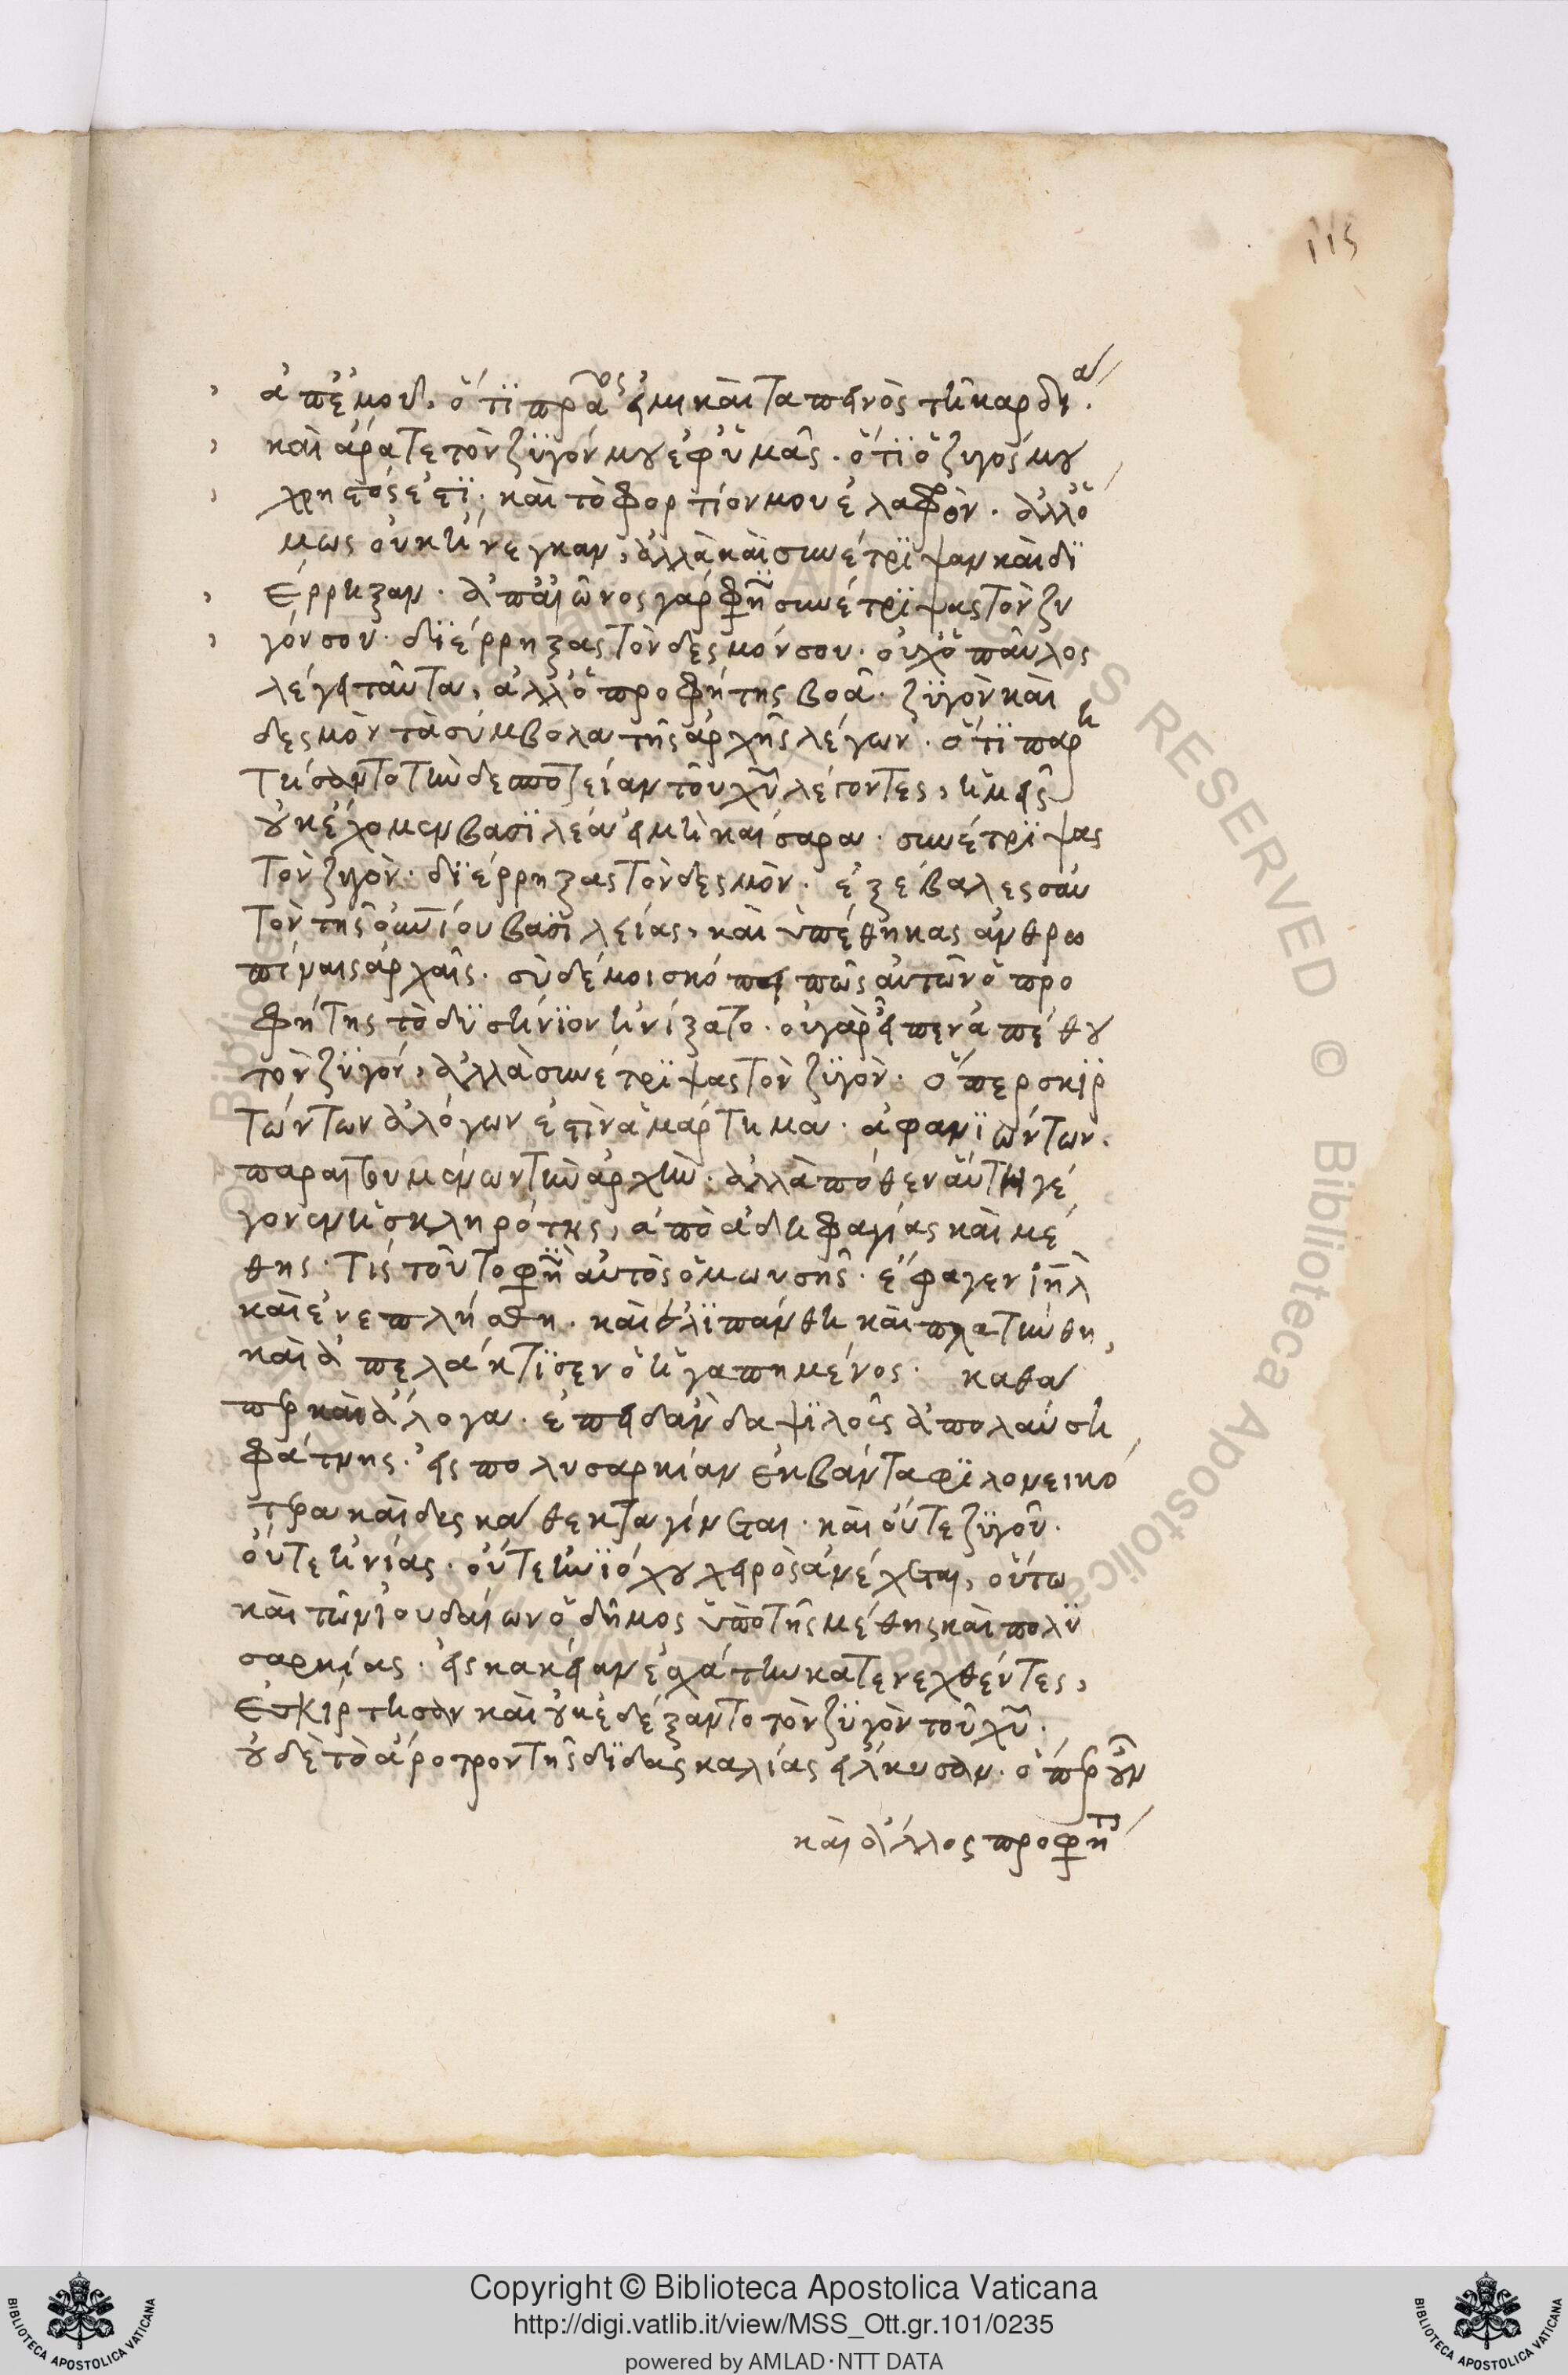 115
ἀπ' ἐμοῦ, ὅτι πρᾶος εἰμι καὶ ταπεινὸς τῆ καρδία.
καὶ ἄρατε τὸν ζυγόν μου ἐφ' ὑμᾶς. ὅτι ὁ ζυγός μου
χρηστός ἐστι. καὶ τὸ φορτίον μου ἐλαφρόν. ἀλλ' ὅ
μως οὐκ ἤνεγκαν, ἀλλὰ καὶ συνέτριψαν καὶ δι
έρρηξαν. ἀπ' αἰῶνος γάρ φησι συνέτριψας τὸν ζυ
γόν σου. διέρρηξας τὸν δεσμόν σου. οὐχ ὁ παῦλος
λέγει ταῦτα, ἀλλ' ὁ προφήτης βοᾶ. ζυγὸν καὶ
δεσμὸν τὰ σύμβολα τῆς ἀρχῆς λέγων. ὅτι παρη
τήσαντο τὴν δεσποτείαν τοῦ χυ λέγοντες, ἡμεῖς
οὐκ ἔχομεν βασιλέα εἰ μὴ καίσαρα. συνέτριψας
τὸν ζυγὸν. διέρρηξας τὸν δεσμὸν. ἐξέβαλες σαυ
τὸν τῆς οὐνίου βασιλείας, καὶ ὑπέθηκας ἀνθρω
πίναις ἀρχαῖς. σὺ δέ μοι σκόπει πῶς αὐτῶν ὁ προ
φήτης τὸ δυσήνιον ἠνίξατο. οὐ γὰρ εἶπεν ἀπέθου
τὸν ζυγόν, ἀλλὰ συνέτριψας τὸν ζυγὸν. ὅπερ σκιρ
τώντων ἀλόγων ἐστὶν ἁμάρτημα. ἀφανιώντων.
παραιτουμένων τὴν ἀρχὴν. ἀλλὰ πόθεν αὕτη γέ
γονεν ἡ σκληρότης, ἀπὸ ἀδηφαγίας καὶ μέ
θης. τίς τοῦτο φησι αὐτὸς ὁ μωυσῆς. ἔφαγεν ιηλ
καὶ ἐνεπλήσθη. καὶ ἐλιπάνθη καὶ πλατύνθη,
καὶ ἀπελάκτισεν ὁ ἠγαπημένος. καθά
περ καὶ ἄλογα. ἐπειδὰν δαψιλοῦς ἀπολαύση
φάτνης. εἰς πολυσαρκίαν ἐκβάντα φιλονεικό
τερα καὶ δεσκάθεκτα γίνεται. καὶ οὔτε ζυγοῦ.
οὔτε ἡνίας. οὔτε ἡνιόχου χειρὸς ἀνέχεται, οὕτω
καὶ τῶν ἰουδαίων ὁ δῆμος ὑπὸ τῆς μέθης καὶ πολυ
σαρκίας. εἰς κακίαν ἐσχάτην κατενεχθέντες,
ἐσκίρτησαν καὶ οὐκ ἐδέξαντο τὸν ζυγὸν τοῦ χυ.
οὐδὲ τὸ ἄροτρον τῆς διδασκαλίας εἵλκυσαν. ὅπερ οὖν
καὶ ἄλλος προφήτης
Copyright © Biblioteca Apostolica Vaticana
http://digi.vatlib.it/view/MSS_Ott.gr.101/0235
powered by AMLAD·NTT DATA